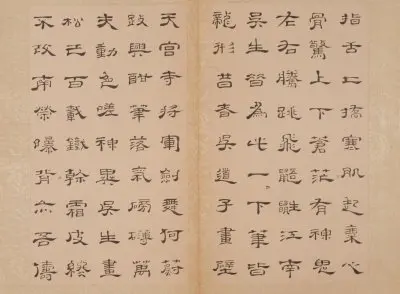 指舌上撟寒肌起粟心
骨驚上下蒼茫有神鬼
左右騰跳飛鼯鼪江南
吳生為此一下筆皆
龍形昔者吳道子畫壁
天宮寺將軍劍舞何蔚
跂興酣筆落氣磅礴萬
夫動色嗟神異吳生畫
松已百載鐵幹霜皮終
不改南榮曝背亦吾儔